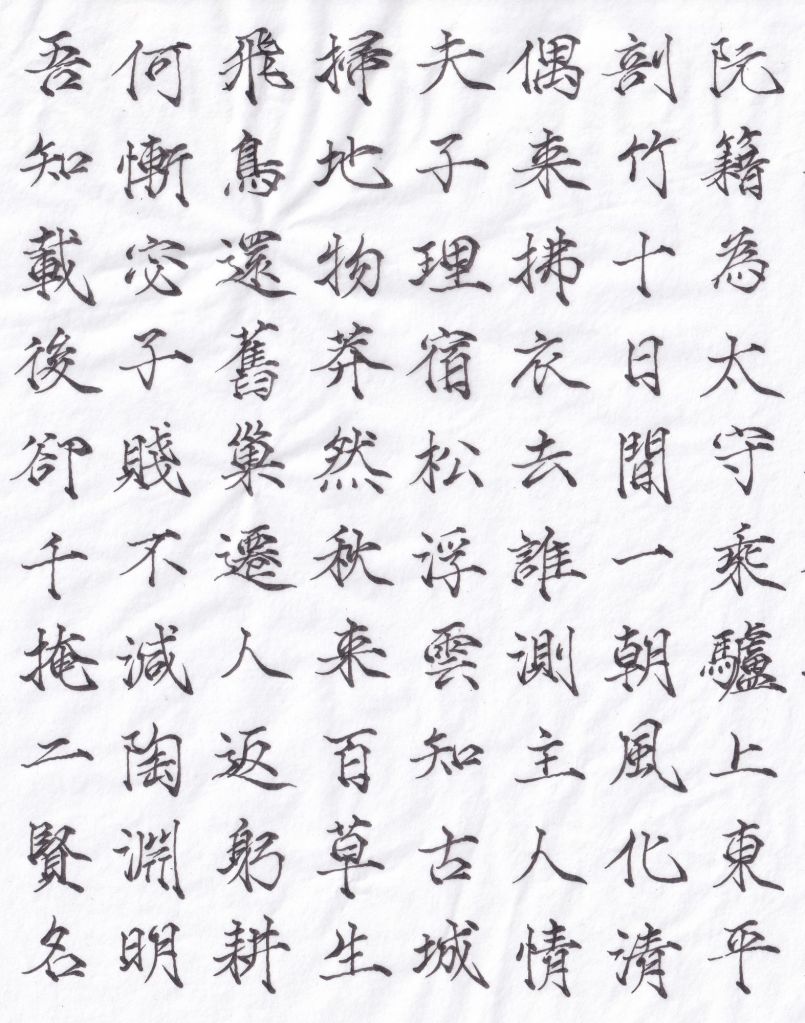 阮籍為太守乘驢上東平
剖竹十日間一朝風化清
偶来拂衣去誰測主人情
夫子理宿松浮雲知古城
掃地物莽然秋来百草生
飛鳥還舊巢遷人返躬耕
何慚宓子賤不減陶淵明
吾知載後卻千掩二賢名